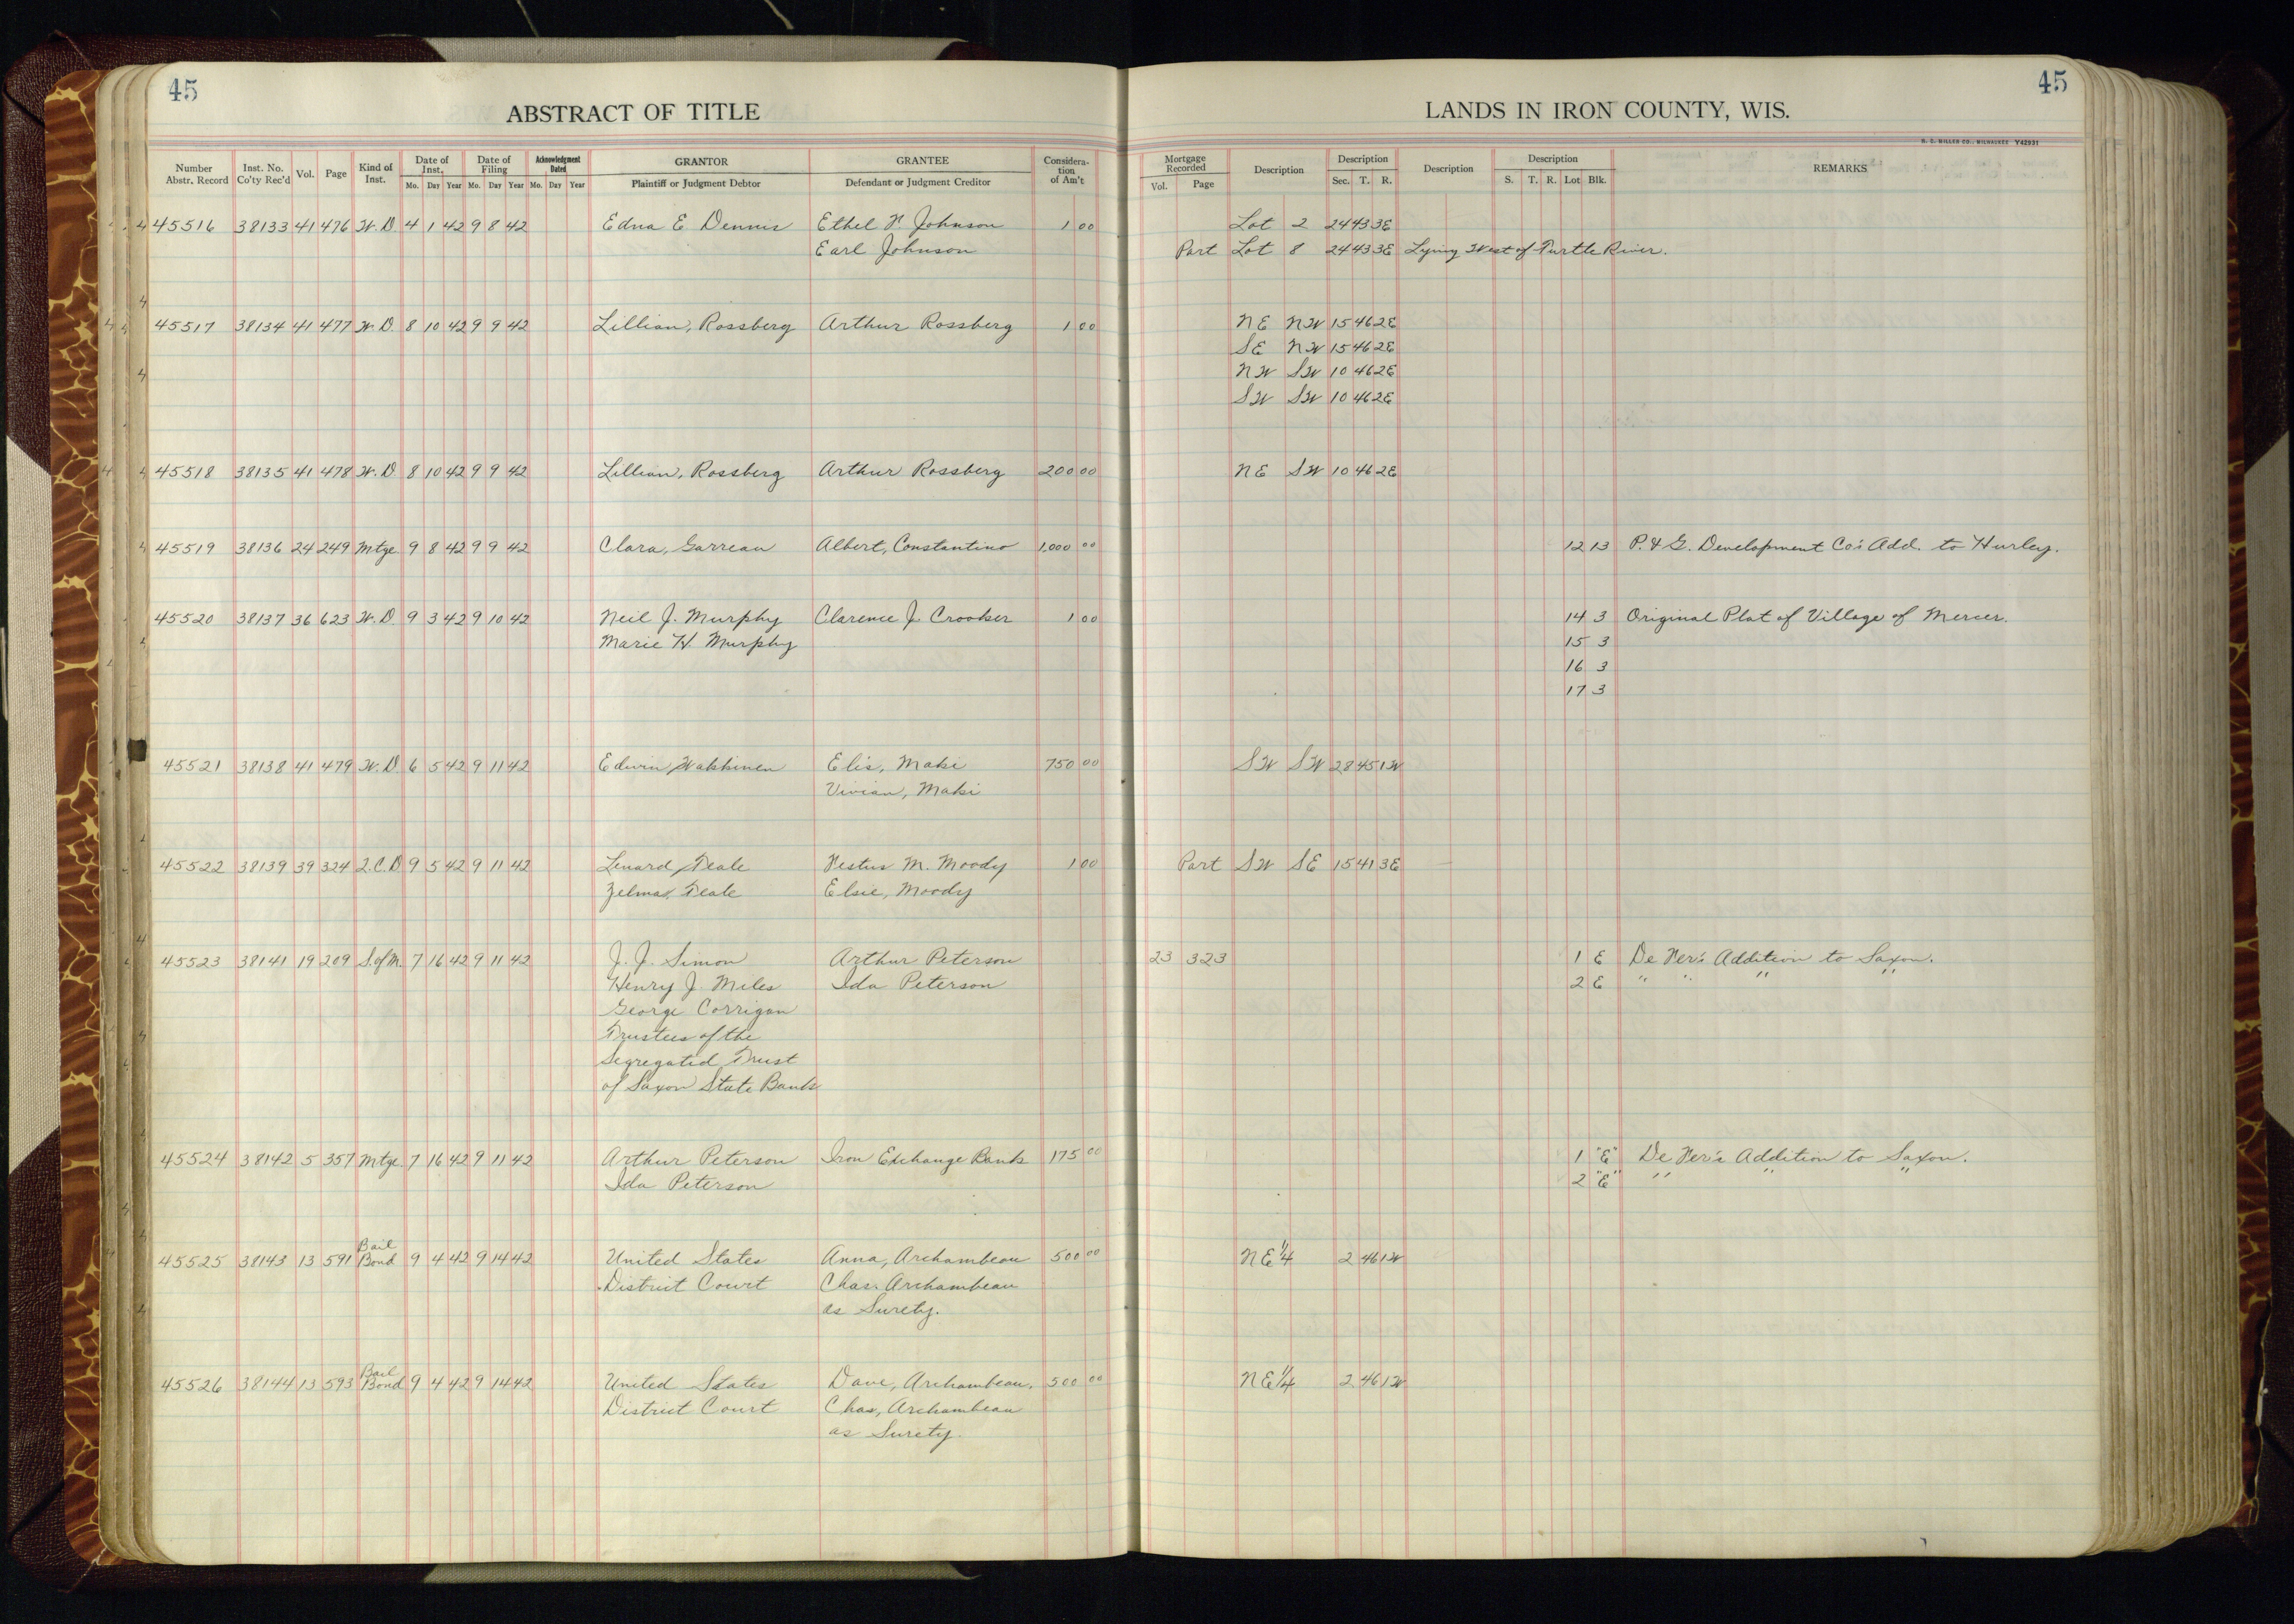 45
45
ABSTRACT OF TITLE
LANDS IN IRON COUNTY, WIS.
H. C. MILLER CO., MILWAUKEE Y42931
Number Abstr. Record | Inst. No. Co'ty Rec'd | Vol. | Page | Kind of Inst. | Date of Inst. Mo. Day Year | Date of Filing Mo. Day Year | Acknowledgment Dated Mo. Day Year | GRANTOR Plaintiff or Judgment Debtor | GRANTEE Defendant or Judgment Creditor | Consideration of Am't | Mortgage Recorded Vol. Page | Description | Description Sec. T. R. | Description | Description S. T. R. Lot Blk. | REMARKS
45516 38133 41 476 W.D 4 1 42 9 8 42 Edna E Dennis Ethel V. Johnson 1 00 Lot 2 24 43 3E
Earl Johnson Part Lot 8 24 43 3E Lying West of Turtle River.
45517 38134 41 477 W.D 8 10 42 9 9 42 Lillian, Rossberg Arthur Rossberg 1 00 NE NW 15 46 2E
SE NW 15 46 2E
NW SW 10 46 2E
SW SW 10 46 2E
45518 38135 41 478 W.D 8 10 42 9 9 42 Lillian, Rossberg Arthur Rossberg 200 00 NE SW 10 46 2E
45519 38136 24 249 Mtge. 9 8 42 9 9 42 Clara, Garreau Albert, Constantino 1,000 00 12 13 P. & G. Development Co's Add. to Hurley.
45520 38137 36 623 W.D 9 3 42 9 10 42 Neil J. Murphy Clarence J. Crooker 1 00 14 3 Original Plat of Village of Mercer.
Marie H. Murphy 15 3
16 3
17 3
45521 38138 41 479 W.D. 6 5 42 9 11 42 Edwin, Wakkinen Elis, Maki 750 00 SW SW 28 45 1W
Vivian, Maki
45522 38139 39 324 Q.C.D 9 5 42 9 11 42 Lenard, Teale Vestus M. Moody 1 00 Part SW SE 15 41 3E
Zelma, Teale Elsie, Moody
45523 38141 19 209 S. of M. 7 16 42 9 11 42 J. J. Simon Arthur Peterson 23 323 1 E De Ver's Addition to Saxon.
Henry J. Miles Ida Peterson 2 E " " " "
George Corrigan
Trustees of the
Segregated Trust
of Saxon State Bank
45524 38142 5 357 Mtge. 7 16 42 9 11 42 Arthur Peterson Iron Exchange Bank 175 00 1 "E" De Ver's Addition to Saxon.
Ida Peterson 2 "E" " " "
45525 38143 13 591 Bail Bond 9 4 42 9 14 42 United States Anna, Archambeau 500 00 NE 1/4 2 46 1W
District Court Chas. Archambeau
as Surety.
45526 38144 13 593 Bail Bond 9 4 42 9 14 42 United States Dave, Archambeau, 500 00 NE 1/4 2 46 1W
District Court Chas, Archambeau
as Surety.